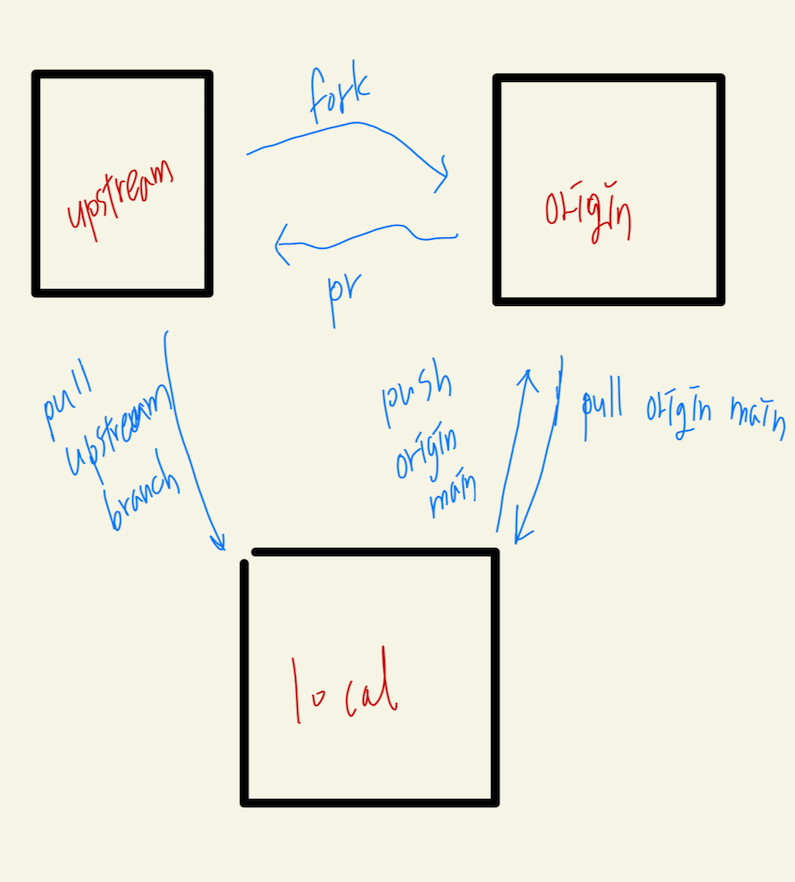 fork
upstream
origin
pr
pull
upstream
branch
push
origin
main
pull origin main
local